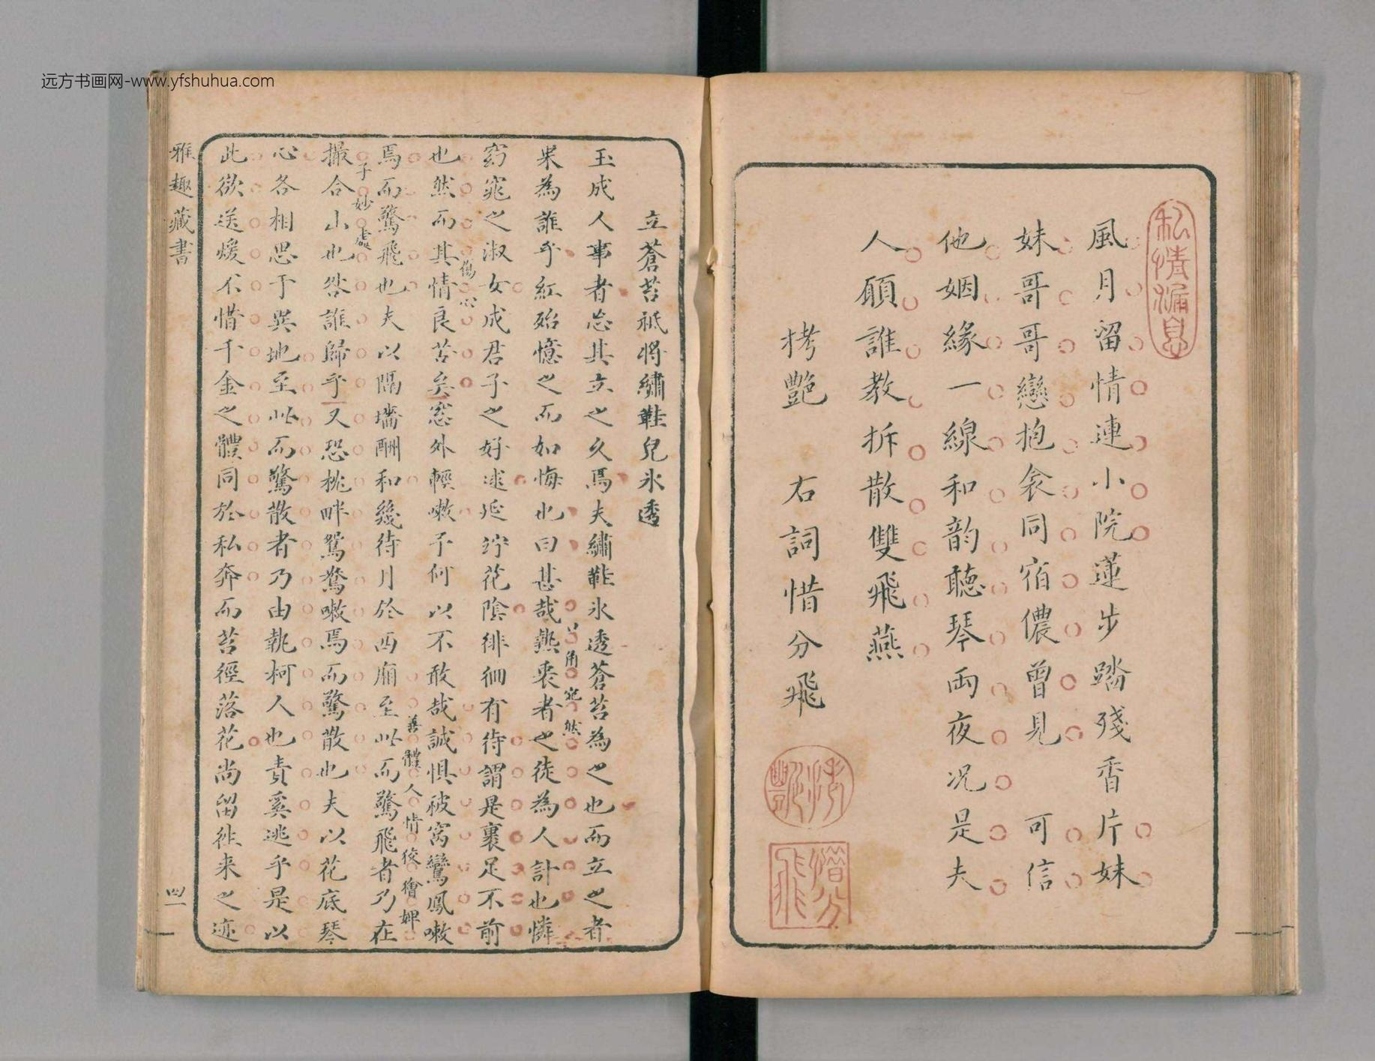 远方书画网-www.yfshuhua.com
私情漏息
風月留情連小院蓮步踏殘香片妹
妹哥哥戀抱衾同宿儂曾見 可信
他姻緣一線和韵聽琴兩夜况是夫
人願誰教拆散雙飛燕
拷艷 右詞惜分飛
惜分飛
立蒼苔祇將繡鞋兒氷透
玉成人事者忘其立之久焉夫繡鞋氷透蒼苔為之也而立之者
果為誰乎紅殆憶之而如悔也曰甚哉熱衷者之徒為人計也憐
窈窕之淑女成君子之好逑延竚花陰徘徊有待謂是裹足不前
也然而其情良苦矣窓外輕嗽予何以不敢哉誠惧被窩鸞鳳嗽
焉而驚飛也夫以隔墻酬和幾待月於西廂至此而驚飛者乃在
撮合山也咎誰歸乎又恐桃畔鴛鴦嗽焉而驚散也夫以花底琴
心各相思于異地至此而驚散者乃由執柯人也責奚逃乎是以
此欲送煖不惜千金之體同於私奔而苔徑落花尚留徃来之迹
善體人情俊獪婢
子妙處
雅趣藏書